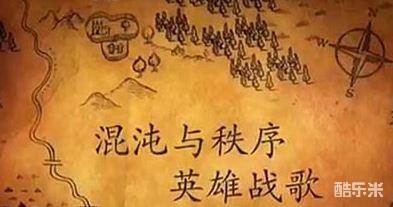 混沌与秩序
英雄战歌
N
S
酷乐米